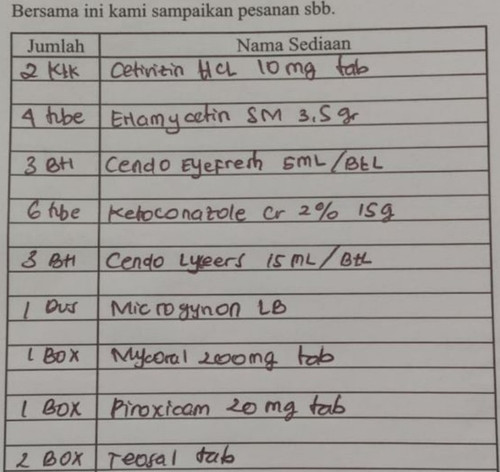 Bersama ini kami sampaikan pesanan sbb.
Jumlah Nama Sediaan
2 Ktk Cetirizin HCL 10 mg tab
4 tube Erlamycetin SM 3,5 gr
3 Btl Cendo Eyefresh 5mL/BtL
6 tube Ketoconazole Cr 2% 15g
3 Btl Cendo Lyteers 15 mL/BtL
1 Dus Microgynon LB
1 BOX Mycoral 200mg tab
1 BOX Piroxicam 20 mg tab
2 BOX Teosal tab